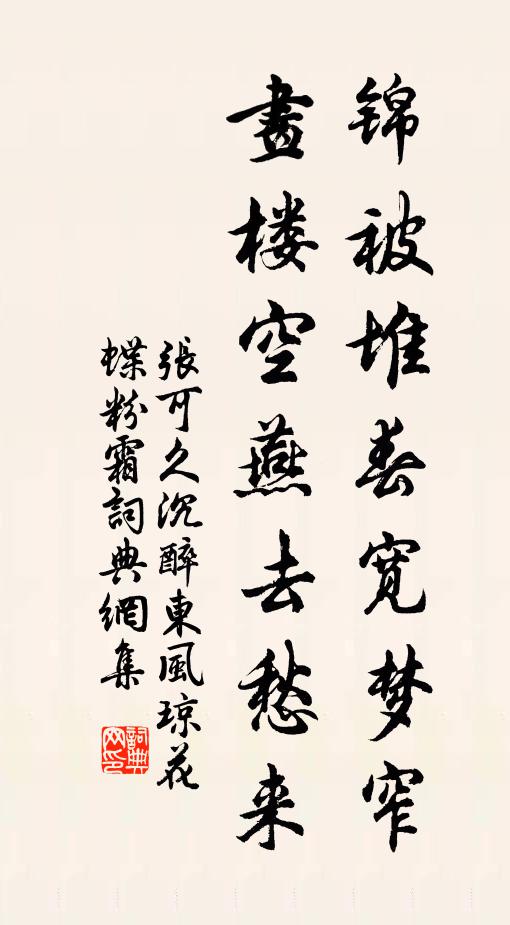 锦被堆春宽梦窄
畫楼空燕去愁来
張可久沉醉東風琼花
蝶粉霜詞典網集
詞典网印